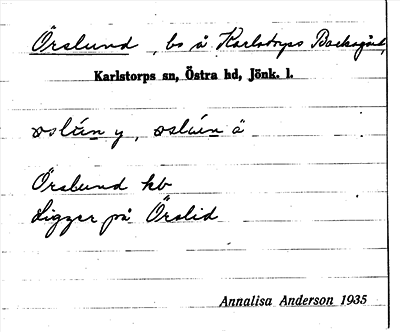 Örslund, bs å Karlstorps Backagård,
Karlstorps sn, Östra hd, Jönk. l.
y, ä
Örslund kb
Ligger på Örslid
Annalisa Anderson 1935